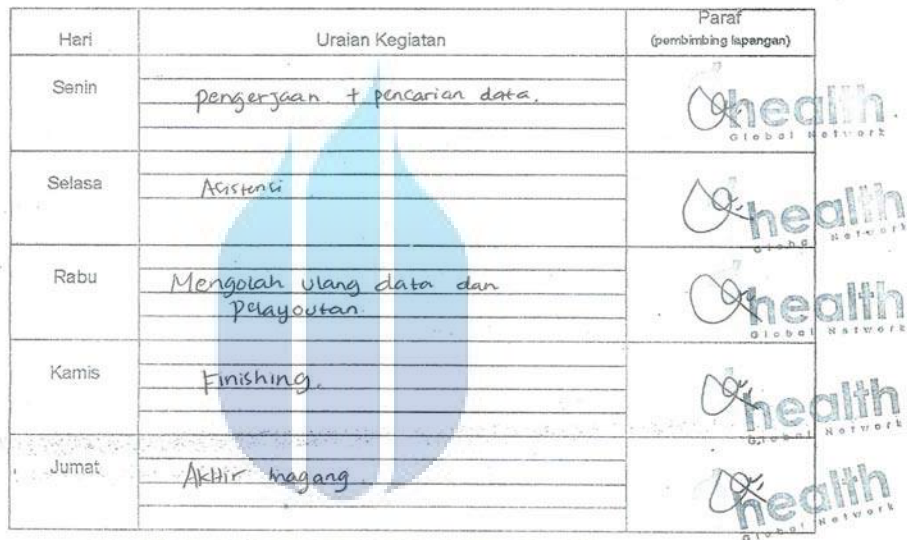 Hari Uraian Kegiatan Paraf
(pembimbing lapangan)
Senin
pengerjaan + pencarian data.
health
Global Network
Selasa
Asistensi
health
Global Network
Rabu
Mengolah ulang data dan
pelayoutan.
health
Global Network
Kamis
Finishing.
health
Global Network
Jumat
Akhir magang
health
Global Network